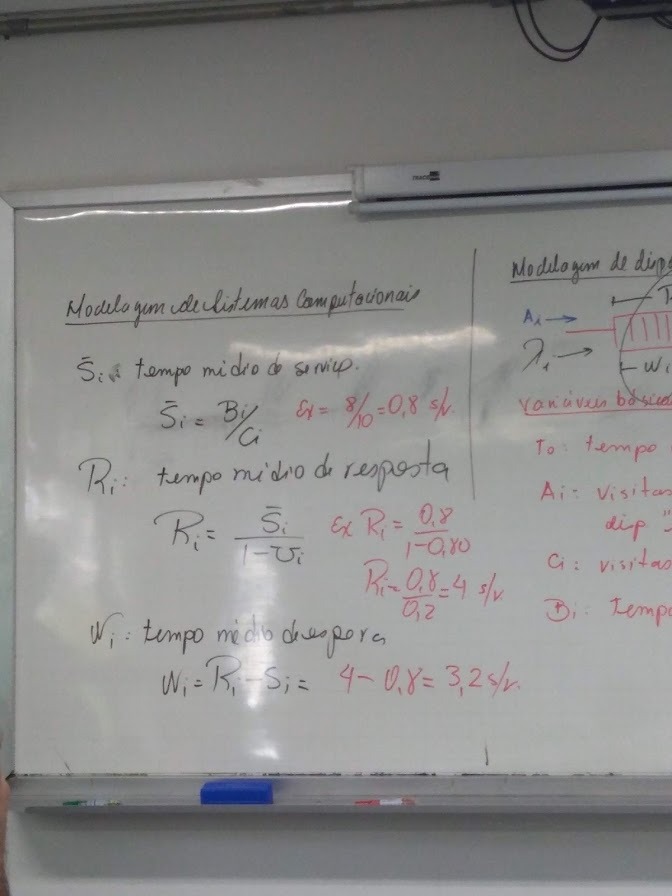 Modelagem de Sistemas Computacionais
S̄i: tempo médio de serviço.
S̄i = Bi/Ci Ex = 8/10 = 0,8 s/v.
Ri: tempo médio de resposta
Ri = S̄i/1-Ui Ex Ri = 0,8/1-0,80
Ri = 0,8/0,2 = 4 s/v
Wi: tempo médio de espera
Wi = Ri - Si = 4 - 0,8 = 3,2 s/v.
Modelagem de disp
Ai
λi
Wi
Variáveis básicas
To: tempo
Ai: visitas
disp
Ci: visitas
Bi: Tempo